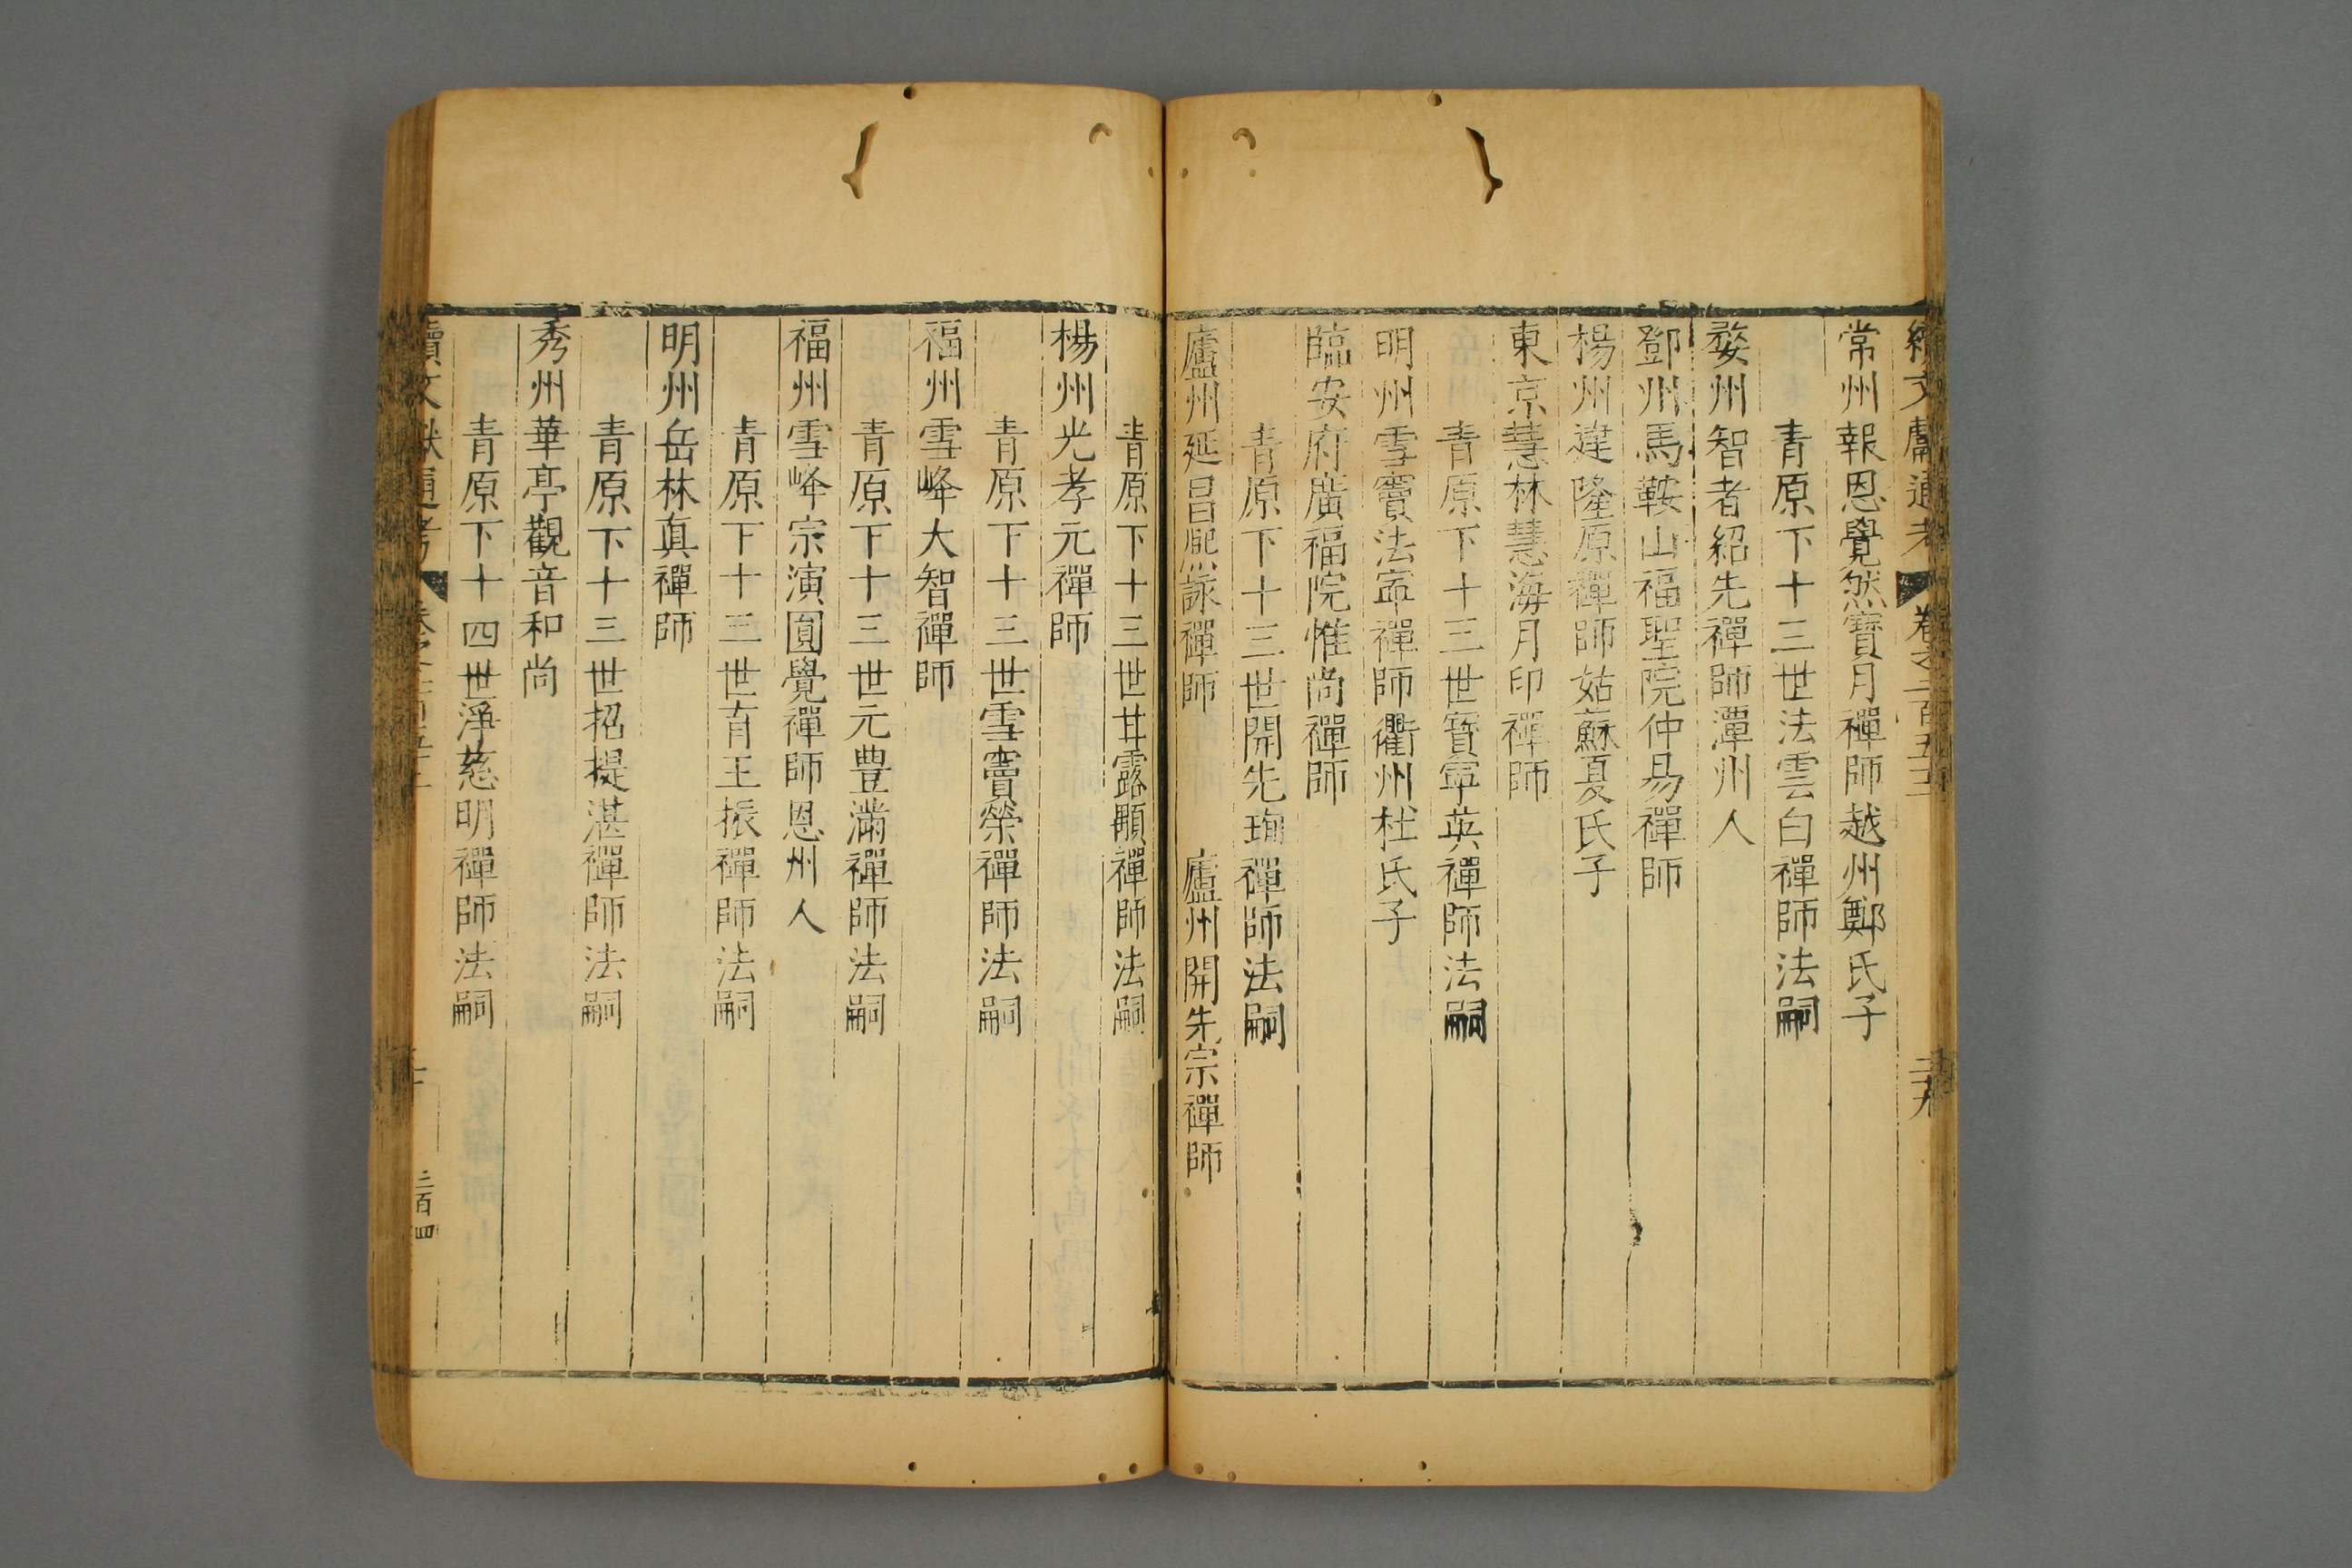 續文獻通考 卷之二百五十
常州報恩覺然寶月禪師越州鄭氏子
青原下十三世法雲白禪師法嗣
婺州智者紹先禪師潭州人
鄧州馬鞍山福聖院仲易禪師
楊州建隆原禪師姑蘇夏氏子
東京慧林慧海月印禪師
青原下十三世寶寧英禪師法嗣
明州雪竇法寧禪師衢州杜氏子
臨安府廣福院惟尚禪師
青原下十三世開先珣禪師法嗣
廬州延昌熈詠禪師 廬州開先宗禪師
青原下十三世甘露顒禪師法嗣
楊州光孝元禪師
青原下十三世雪竇榮禪師法嗣
福州雪峰大智禪師
青原下十三世元豊滿禪師法嗣
福州雪峰宗演圓覺禪師恩州人
青原下十三世育王振禪師法嗣
明州岳林真禪師
青原下十三世招提湛禪師法嗣
秀州華亭觀音和尚
青原下十四世淨慈明禪師法嗣
續文獻通考 三百四